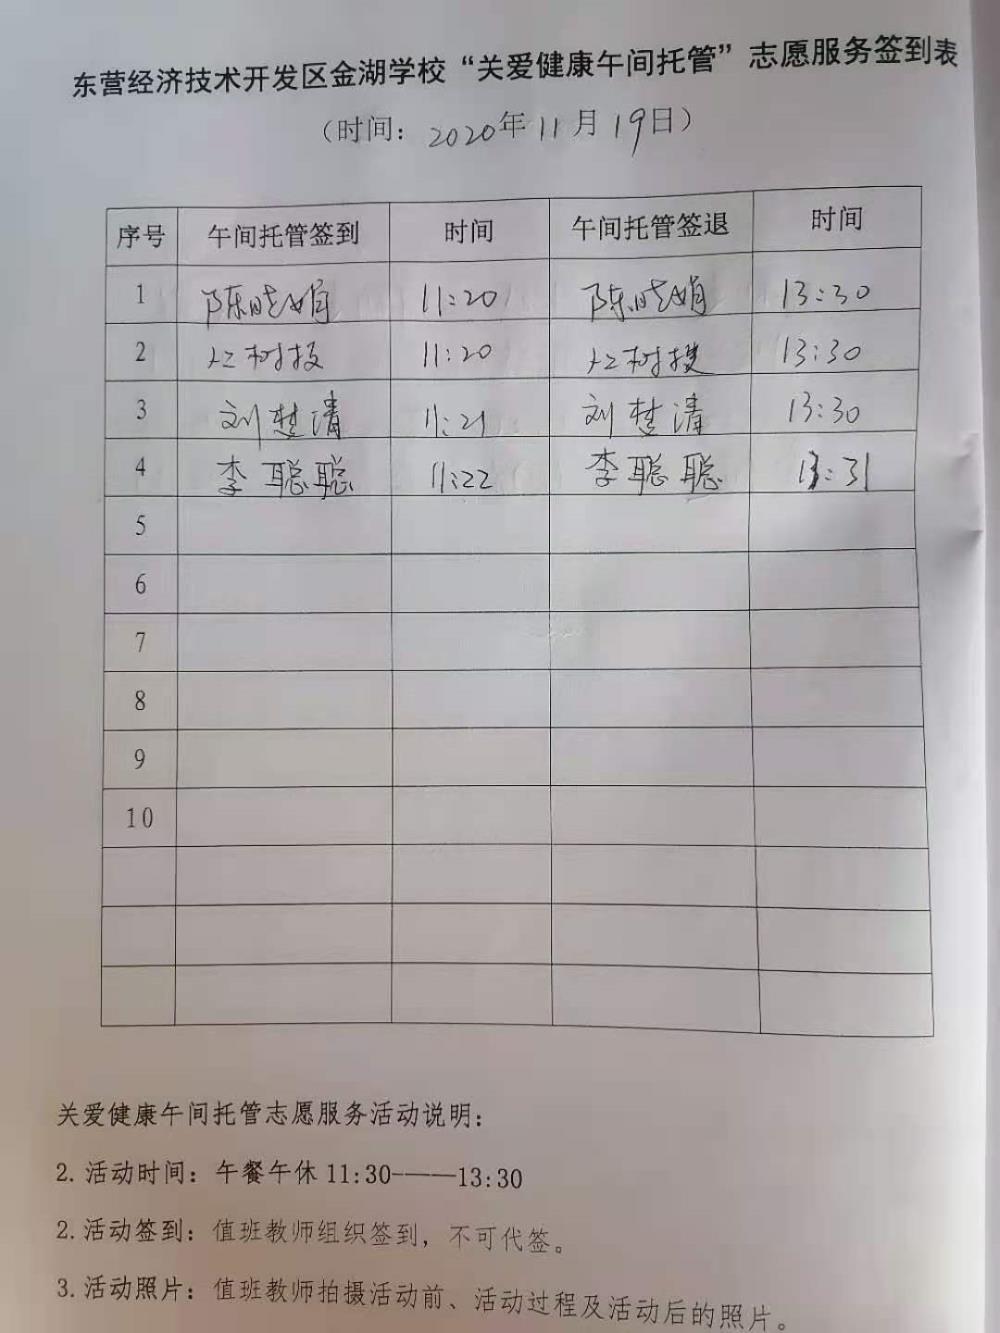 东营经济技术开发区金湖学校“关爱健康午间托管”志愿服务签到表
（时间：2020年11月19日）
序号 午间托管签到 时间 午间托管签退 时间
1 陈晓娟 11:20 陈晓娟 13:30
2 树 11:20 树 13:30
3 刘楚清 11:21 刘楚清 13:30
4 李聪聪 11:22 李聪聪 13:31
5
6
7
8
9
10
关爱健康午间托管志愿服务活动说明：
2.活动时间：午餐午休11:30——13:30
2.活动签到：值班教师组织签到，不可代签。
3.活动照片：值班教师拍摄活动前、活动过程及活动后的照片。